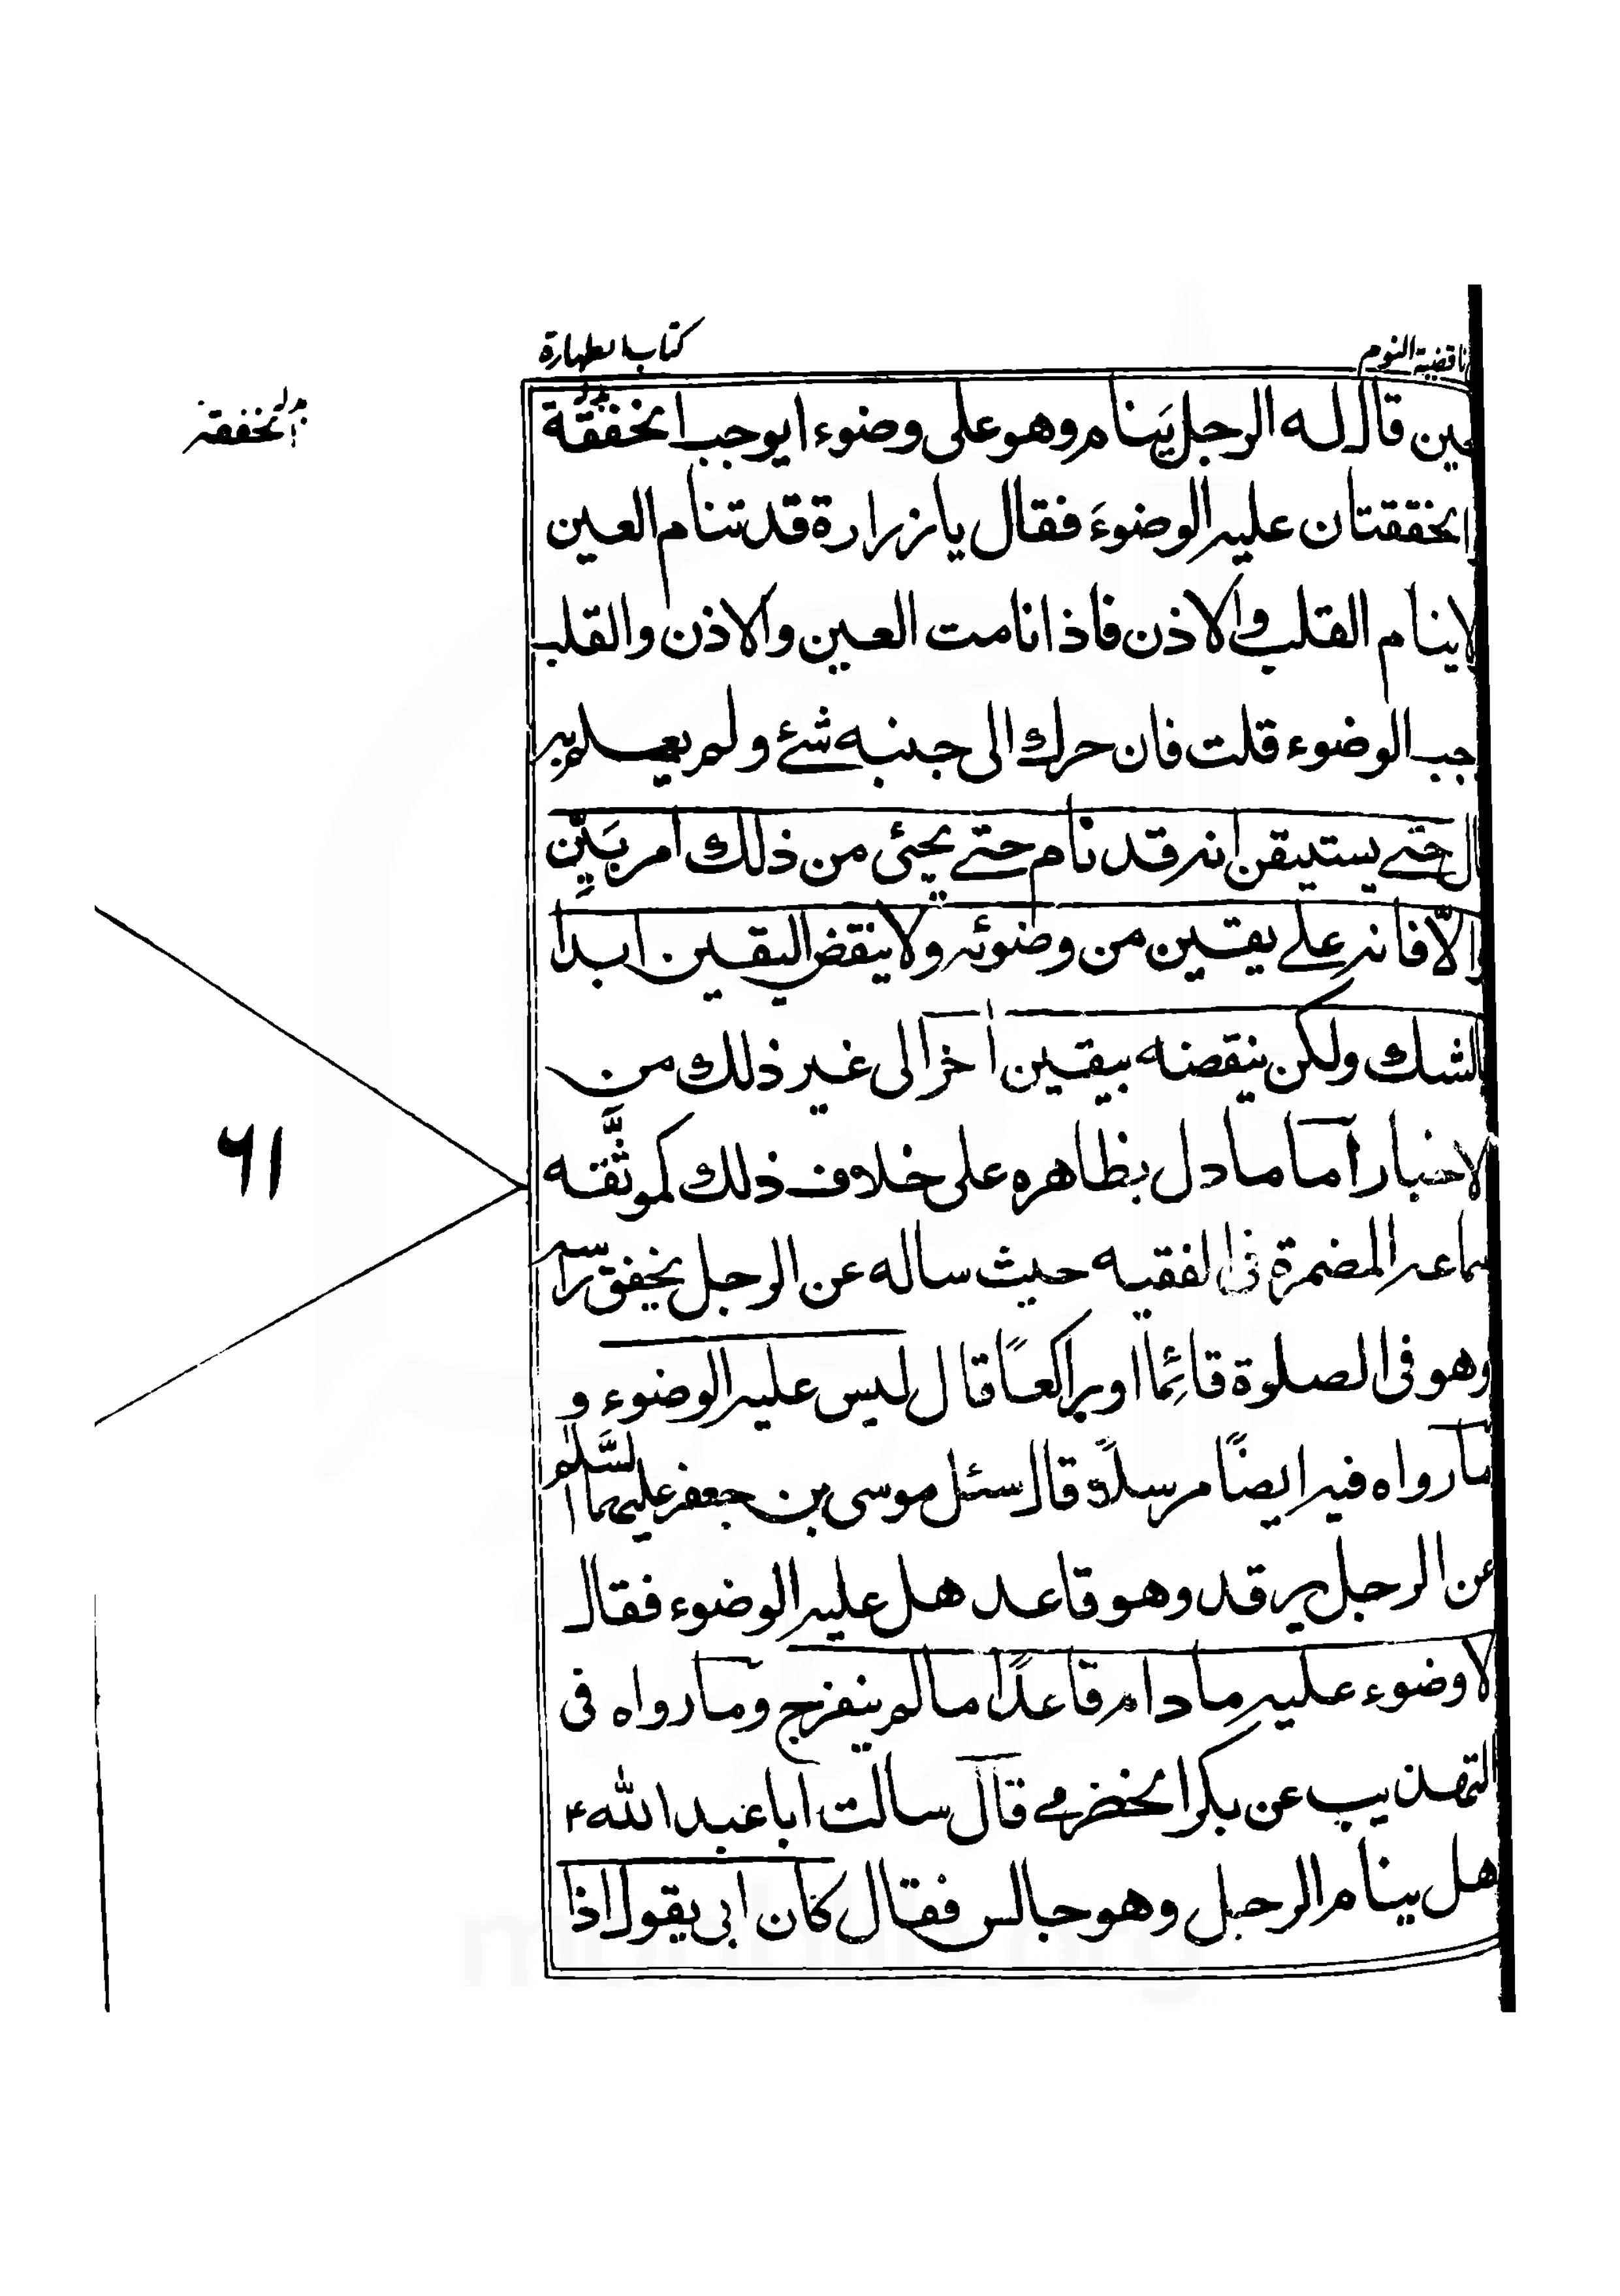 ناقضية النوم
كتاب الطهارة
حين قال له الرجل يَنام وهو على وضوء ايوجب الخفقة
الخفقة
الخفقتان عليه الوضوءَ فقال يا زرارة قد تنام العين
لاينام القلب والاذن فاذا نامت العين والاذن والقلب
جب الوضوء قلت فان حرك الى جنبه شئ ولم يعلم به
ال حتى يستيقن انه قد نام حتى يجئ من ذلك امر بَيِّن
والّا فانه على يقين من وضوئه ولا ينقض اليقين ابدا
بالشك ولكن ينقضه بيقين اخر الى غير ذلك من
الاخبار اما ما دل بظاهره على خلاف ذلك كموثَّقه
سماعه المضمرة فى الفقيه حيث ساله عن الرجل يخفق راسه
وهو فى الصلوة قائِما او راكعًا قال ليس عليه الوضوء و
ما رواه فيه ايضًا مرسلاً قال سئل موسى بن جعفر عليهما السَّلم
عن الرجل يرقد وهو قاعد هل عليه الوضوء فقال
لا وضوء عليه مادام قاعدًا ما لم ينفرج وما رواه فى
التهذيب عن بكر الحضرمى قال سالت ابا عبد الله ع
هل ينام الرجل وهو جالس فقال كان ابى يقول اذا
٦١